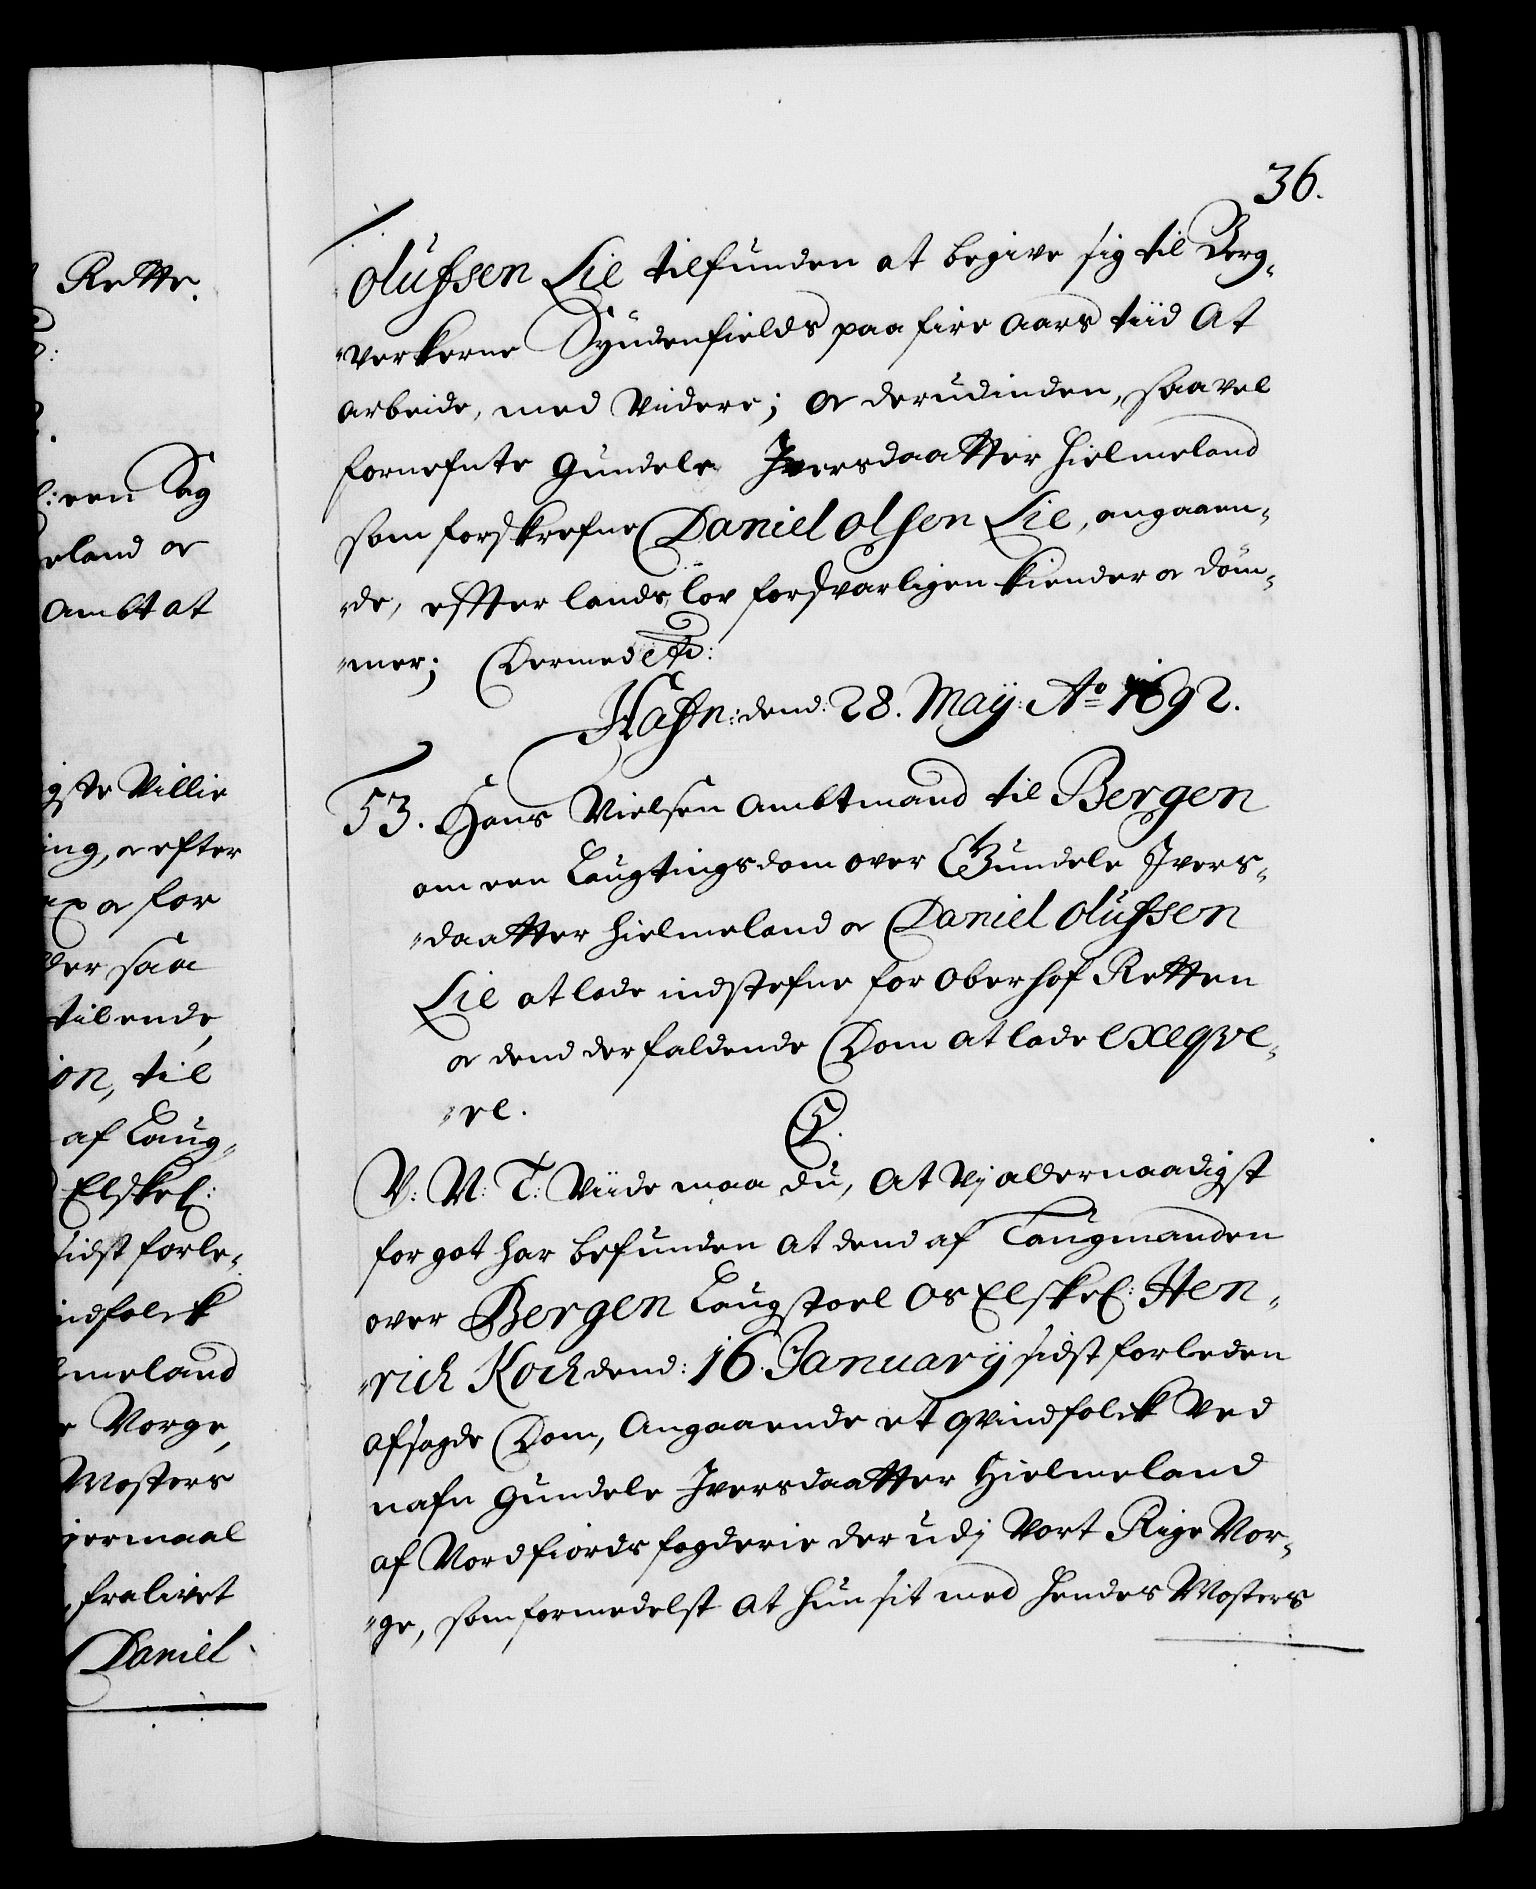 36.
Olufsen Lie tilfunden at begive sig til Berg-
verkerne Syndenfields paa fire Aars tiid At
arbeide, med Videre; Or derudinden, saavel
fornefnte Gundele Iversdaatter Hielmeland
som forskrefne Daniel Olsen Lie, angaaen-
de, effter lands lov forsvarligen kiender or döm-
mer; Dermed etc:
Hafn: dend: 28. Maÿ: Ao 1692.
53. Hans Nielsen Ambtmand til Bergen
om een Laugtingsdom over Gundele Ivers-
daatter Hielmeland or Daniel Olufsen
Lie at lade indstefne for Oberhof Retten
or dend der faldende Dom at lade exeqve-
re.
C5.
V: N: T: Viide maa du, At Vj allernaadigst
for got har befunden at dend af Laugmanden
over Bergen Laugstoel Os Elskel: Hen-
rich Koch dend: 16. Januarÿ sidst forleden
afsagde Dom, Angaaende et qvindfolck Ved
nafn Gundele Iversdaatter Hielmeland
af Nordfiords fogderie der udj Vort Rige Nor-
ge, som formedelst at hun sit med hendes Mosters
Rette.
een Sag
eland or
Ambt at
igste Villie
ing, or efter
or for
der saa
til ende,
ion, til
af Laug-
Elskel:
sidst forle-
indfolck
lmeland
Norge,
Mosters
jermaal
fra livet
Daniel